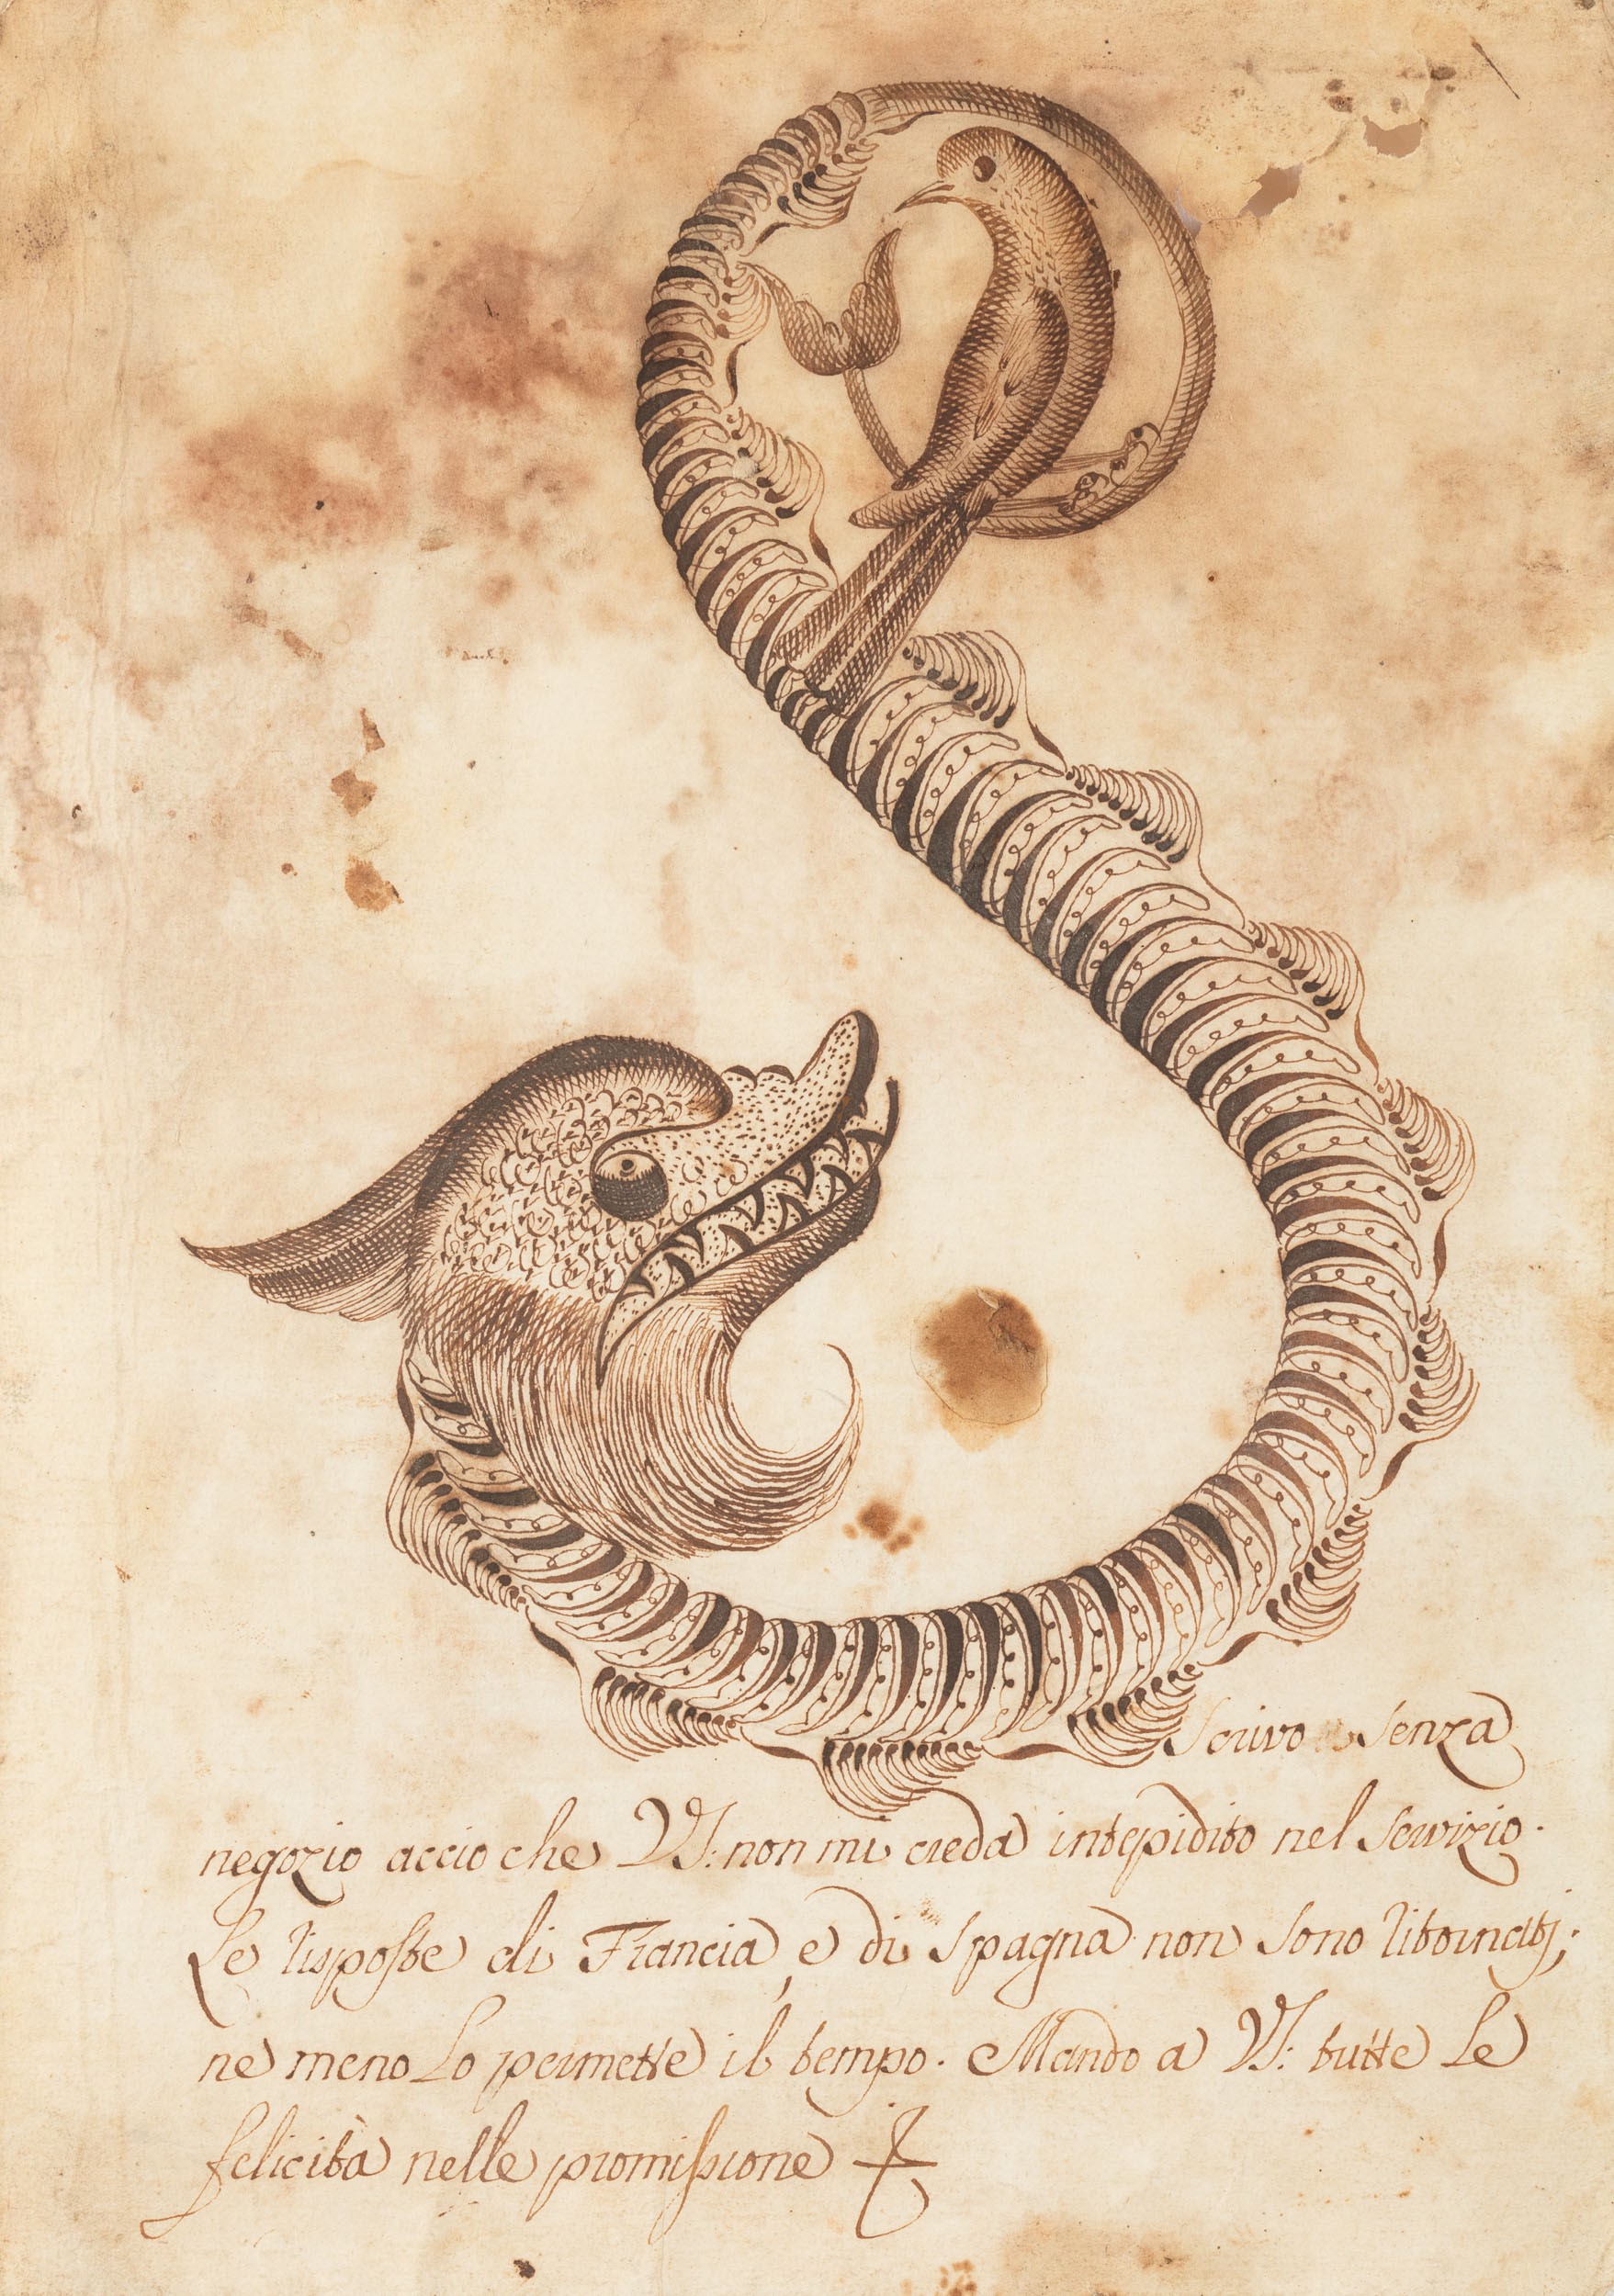 Scrivo senza
negozio accio che VS: non mi creda intepidito nel servizio.
Le risposte di Francia, e di Spagna non sono ritornatj;
ne meno Lo permette il tempo. Mando a VS: tutte Le
felicità nelle promissione